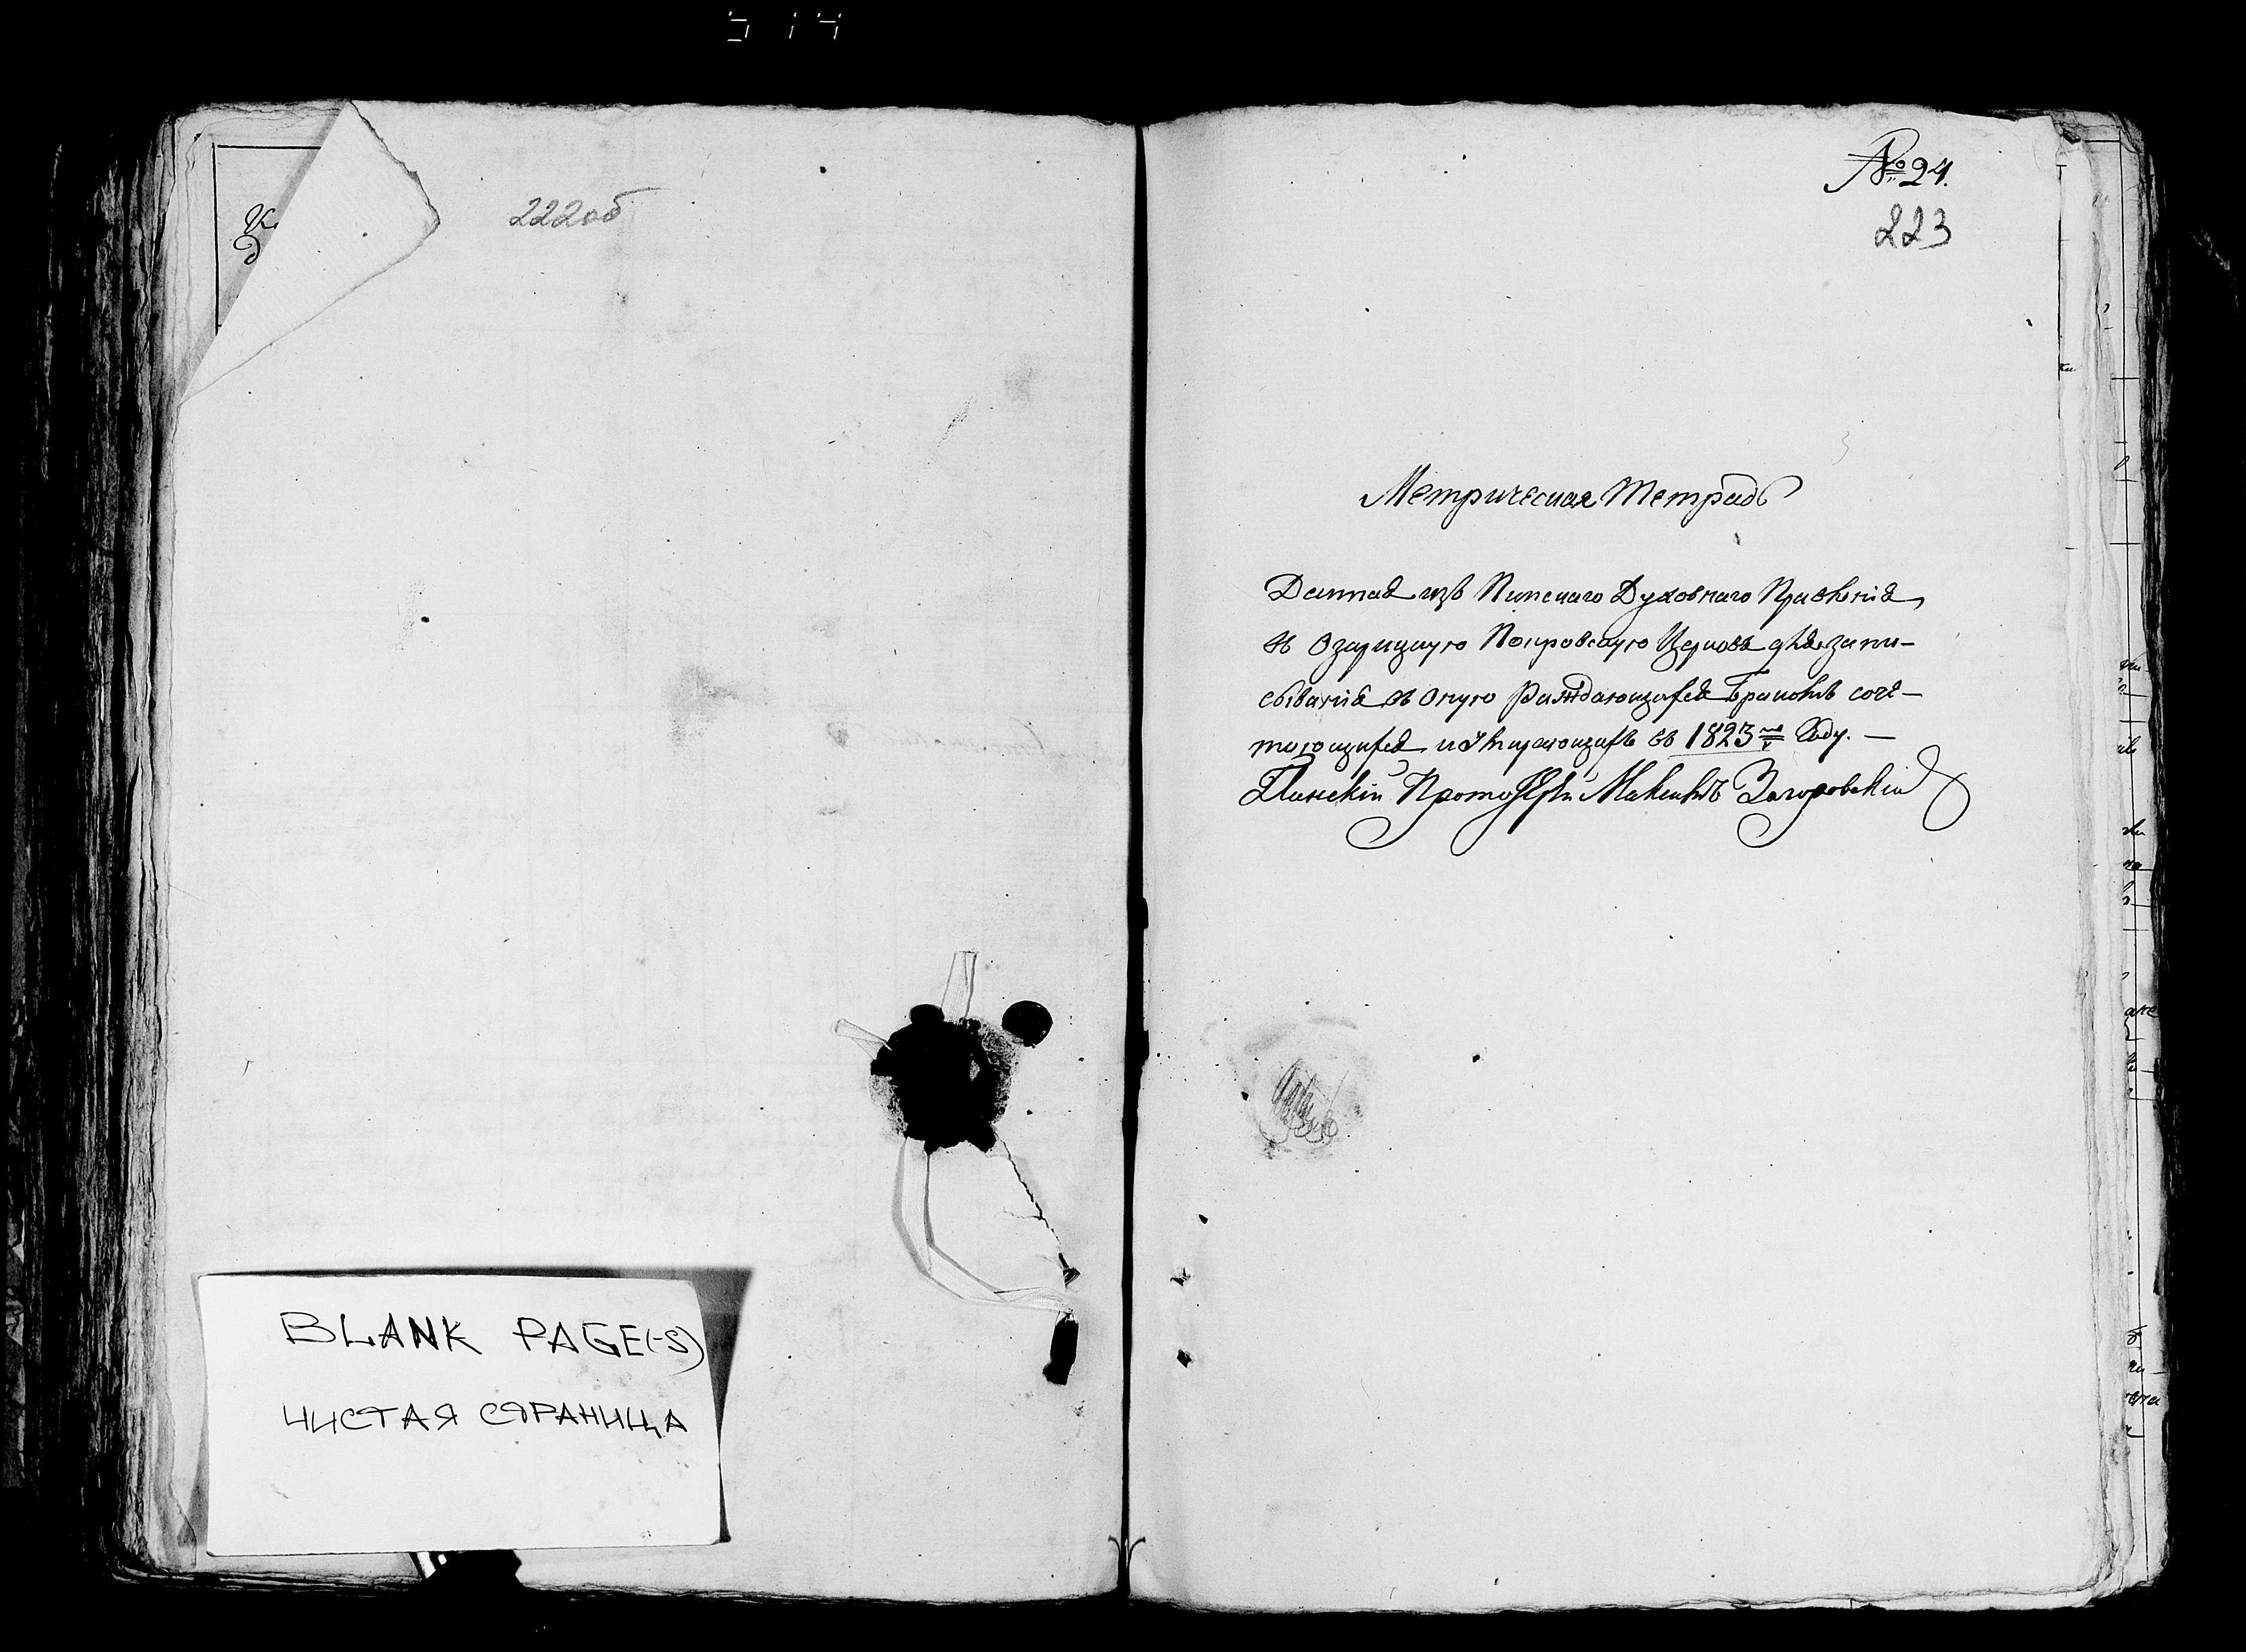 222об
BLANK PAGE(-S)
ЧИСТАЯ СТРАНИЦА
№ 24.
223
Метрическая Тетрадь
Данная изъ Пинскаго Духовнаго Правленія,
въ Озарицкую Покровскую Церковь для запи-
сыванія въ оную раждающихся Бракомъ соче-
тающихся и Умирающихъ въ 1823мъ Году. —
Пинскій Протоіерей Максимъ Загоровскій